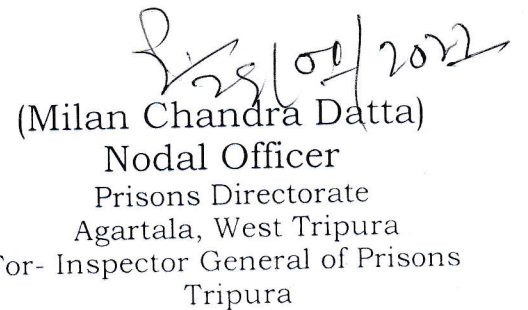 (Milan Chandra Datta)
Nodal Officer
Prisons Directorate
Agartala, West Tripura
For- Inspector General of Prisons
Tripura